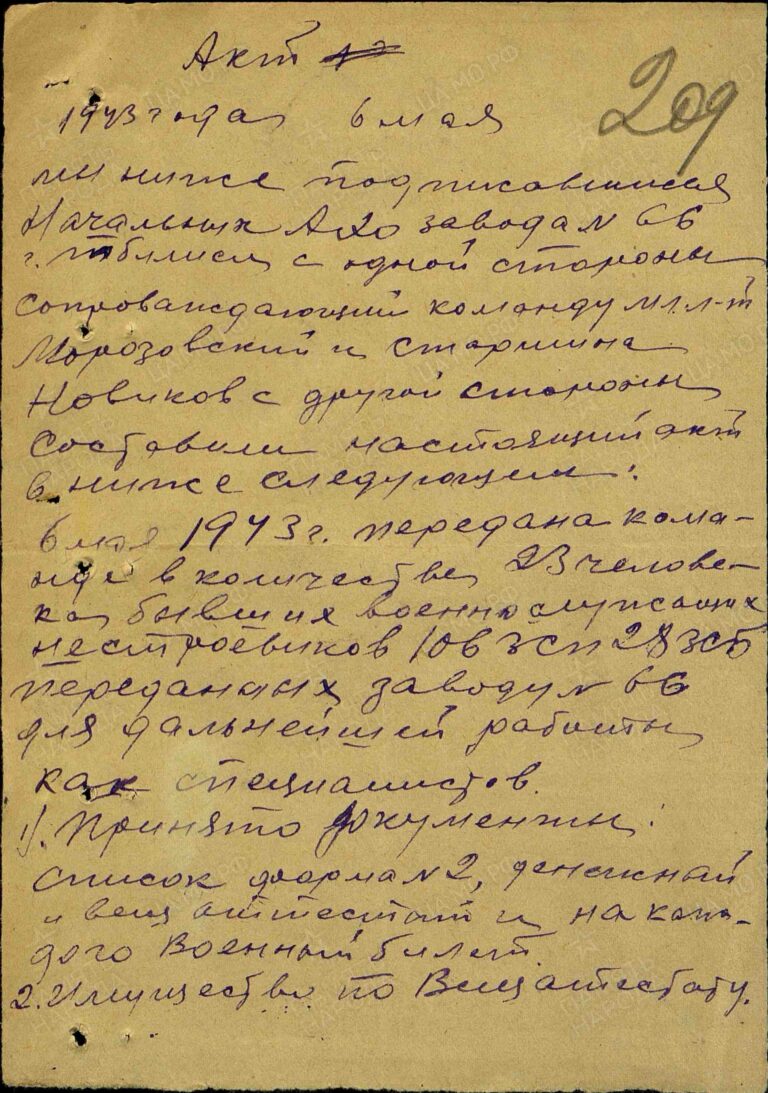 Акт
209
1943 года 6 мая
мы ниже подписавшиеся
Начальник АХО завода N 66
г. Тбилиси с одной стороны
сопроваждающий команду мл. л-т
Морозовский и старшина
Новиков с другой стороны
составили настоящий акт
в ниже следующем:
6 мая 1943 г. передана кома-
нде в количестве 23 челове-
ка бывших военнослужащих
нестроевиков 106 зсп 28 зсб
переданных заводу N 66
для дальнейшей работы
как специалистов.
1). Принято документы:
список форма N 2, денежный
и вещ аттестат и на каж-
дого Военный билет.
2. Имущество по Вещатестату.